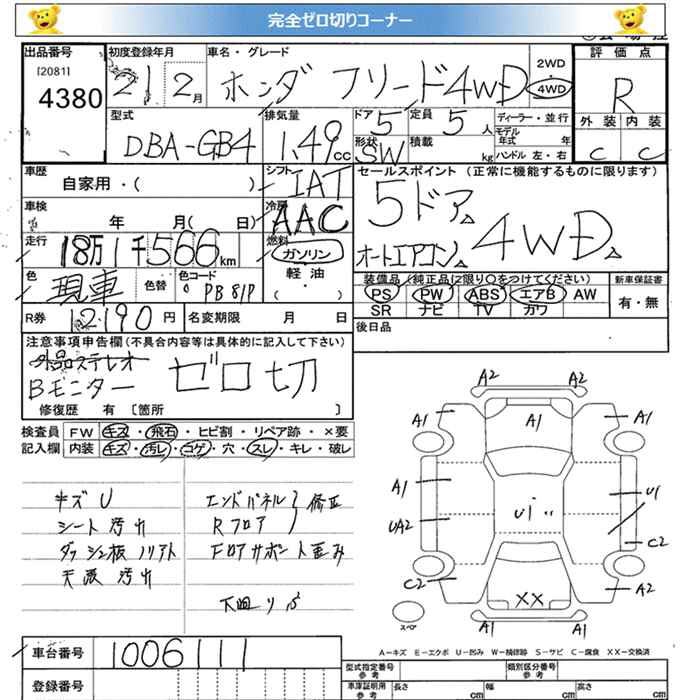 完全ゼロ切りコーナー
出品番号
[2081]
4380
初度登録年月
21 2月
車名・グレード
ホンダ フリード4WD
2WD
4WD
評価点
R
外装 内装
C C
型式
DBA-GB4
排気量
1.49cc
ドア 5
定員 5人
形状
SW
積載 kg
ディーラー・並行
モデル年式 年
ハンドル 左・右
車歴
自家用・( )
シフト
IAT
セールスポイント (正常に機能するものに限ります)
5ドア
オートエアコン 4WD
車検
年 月( 日)
冷房
AAC
走行
18万1千566km
燃料
ガソリン
軽油
( )
色
現車
色替
色コード
PB81P
装備品 (純正品に限り○をつけてください)
PS PW ABS エアB AW
SR ナビ TV カワ
新車保証書
有・無
R券 12190円
名変期限 月 日
後日品
注意事項申告欄(不具合内容等は具体的に記入して下さい)
外品ステレオ
Bモニター ゼロ切
修復歴 有 [箇所 ]
検査員 FW キズ・飛石・ヒビ割・リペア跡・×要
記入欄 内装 キズ・汚レ・コゲ・穴・スレ・キレ・破レ
キズU
シート汚れ
ダッシュ板ノリアト
天張汚れ
エンドパネル
Rフロア 修正
Fロアサポート歪み
下廻りサビ
A2 A2
A1 A1 A1
A1 U1
UA2 Ui
C2
C2 A2
XX
A1 A2
スペア
A-キズ E-エクボ U-凹み W-補修跡 S-サビ C-腐食 XX-交換済
車台番号 1006111
登録番号
型式指定番号
参考
類別区分番号
参考
車庫証明用
参考
長さ cm 幅 cm 高さ cm